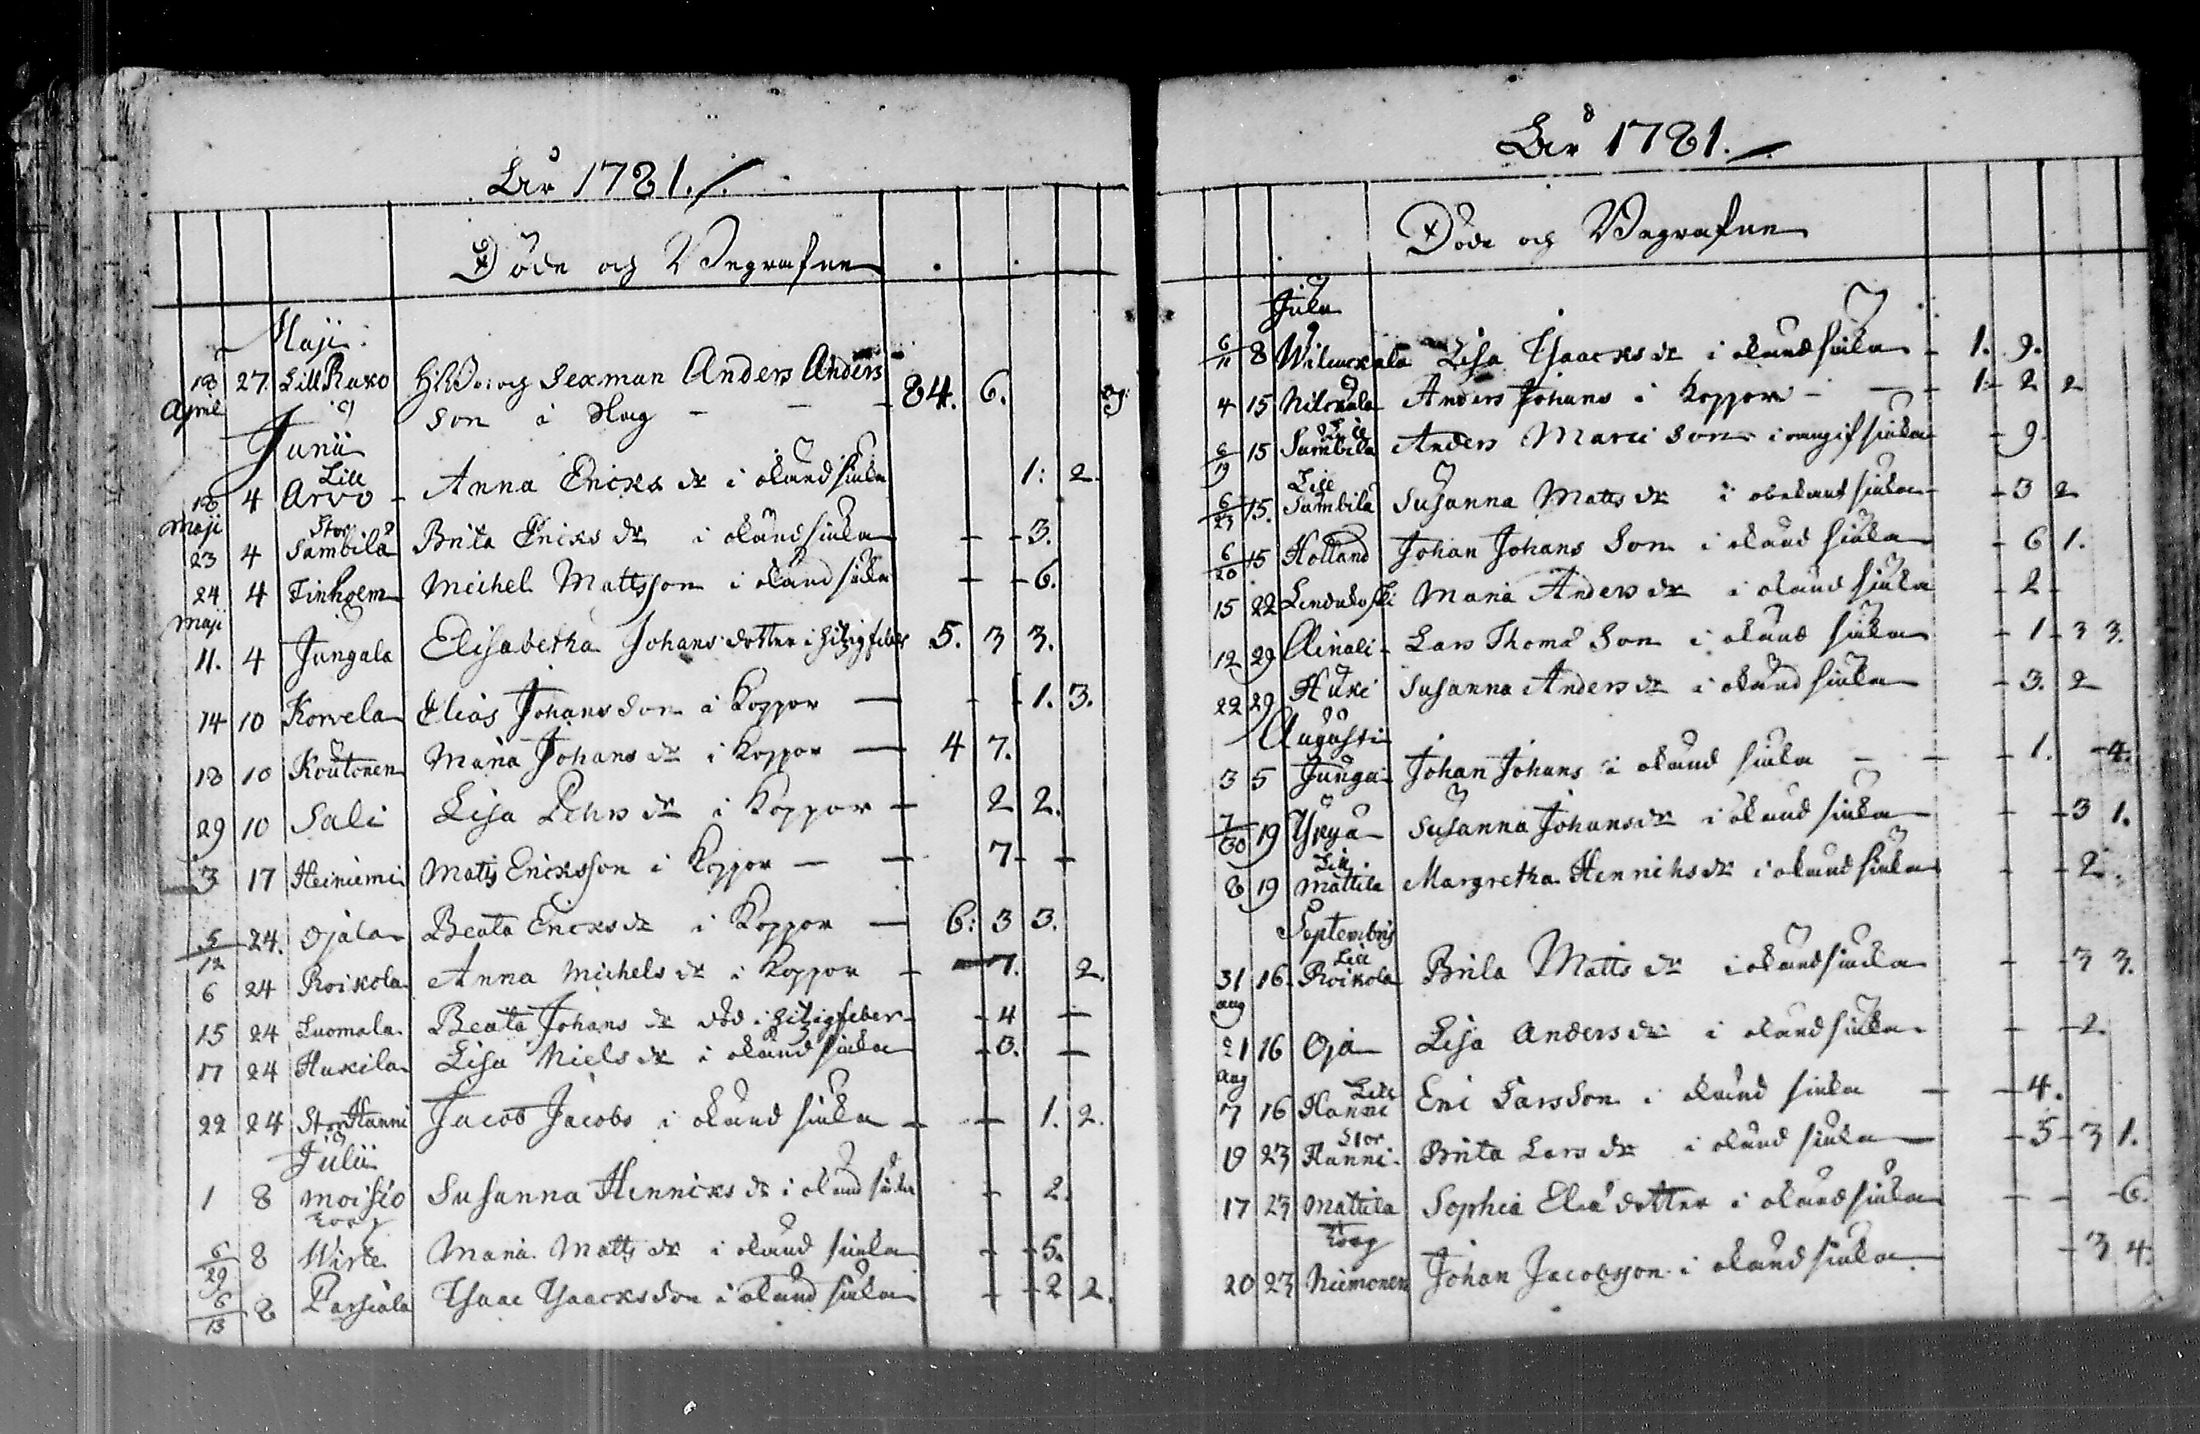 År 1781.
Döde och Begrafne
Maji
18 27. Lill Ruxo Anders Anders
April son 84. 6.
Junii
Lill
18 4 Arvo - Anna Ericks dr i okänd siuka 1: 2.
Maji Stor
23 4 Sämbila Brita Ericks dr i okänd siuka - - 3.
24 4 Finholm Michel Mattsson i okänd siuka - - 6.
Maji
11. 4 Jungala Elisabetha Johans dotter i hitzigfeber 5. 3 3.
14 10 Korvela Elias Johansson i Koppor - - 1. 3.
18 10 Koutonen Maria Johans dr i Koppor - 4 7.
29 10 Sali Lisa Pehrs dr i Koppor - 2 2.
3 17 Heiniemi Matts Ericksson i Koppor - - 7 -
5/12 24. Ojala Beata Ericks dr i Koppor - 6: 3 3.
6 24 Roikola Anna Michels dr i Koppor - 7. 2.
15 24 Luomala Beata Johans dr död i hitzigfeber - 4 -
17 24 Huxila Lisa Niels dr i okänd siuka - 3. -
22 24 Stor Hanni Jacob Jacobs i okänd siuka - - 1. 2.
Julii
1 8 Moisio Susanna Henricks dr i okänd siuka - 2.
6/29 8 Wirte Maria Matts dr i okänd siuka - - 5.
6/13 8 Parsiala Isaac Isaacksson i okänd siuka - - 2 2.
År 1781.
Döde och Begrafne
Julii
6/11 8 Lisa Isaacks dr i okänd siuka - 1. 9.
4 15 Niloxala Anders Johans i Koppor - - 1 - 2 2
6/19 15 Sämbila Anders Marci son i siuka - 9
Lill
6/23 15. Sämbila Susanna Matts dr i siuka - 3 2
6/20 15 Holland Johan Johans Son i okänd siuka - 6 1.
15 22 Lindukoski Maria Anders dr i okänd siuka - 2 -
12 29 Ainali - Lars Thomæ Son i okänd siuka - 1 - 3 3.
22 29 Huxi Susanna Anders dr i okänd siuka - 3. 2
Augusti
3 5 Junga Johan Johans i okänd siuka - - 1. - 4.
7/30 19 Yryä Susanna Johans dr i okänd siuka - - 3 1.
Lill
8 19 Mattila Margretha Henrichs dr i okänd siuka - - 2.
Septembris
Lill
31 16. Roikola Brita Matts dr i okänd siuka - - 3 3.
aug
21 16 Oja Lisa Anders dr i okänd siuka - - 2.
Aug Lill
7 16 Hanni Eric Larsson i okänd siuka - - 4.
Stor
19 23 Hanni - Brita Lars dr i okänd siuka - - 5 - 3 1.
17 23 Mattila Sophia Eliæ dotter i okänd siuka - - - 6.
20 23 Niemonen Johan Jacobsson i okänd siuka - 3 4.